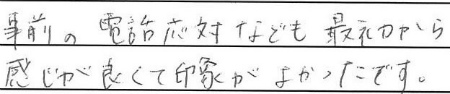 事前の電話応対なども最初から
感じが良くて印象がよかったです。